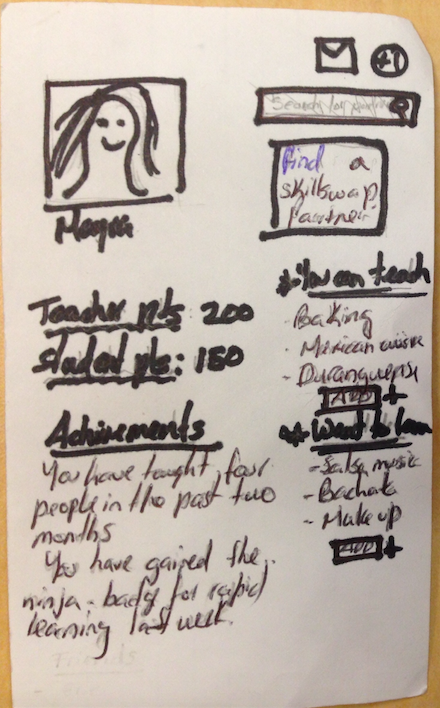 +1
Search for
find a
skillswap
Partner
Teacher pts: 200
Student pts: 150
Achivements
You have tought four
people in the past two
months
You have gained the
ninja - badg for rapid
learning last week.
Friends
* You can teach
- Baking
- Mexican cuisine
- Duranguense
ADD +
* Want to learn
- Salsa music
- Bachata
- Make up
ADD +